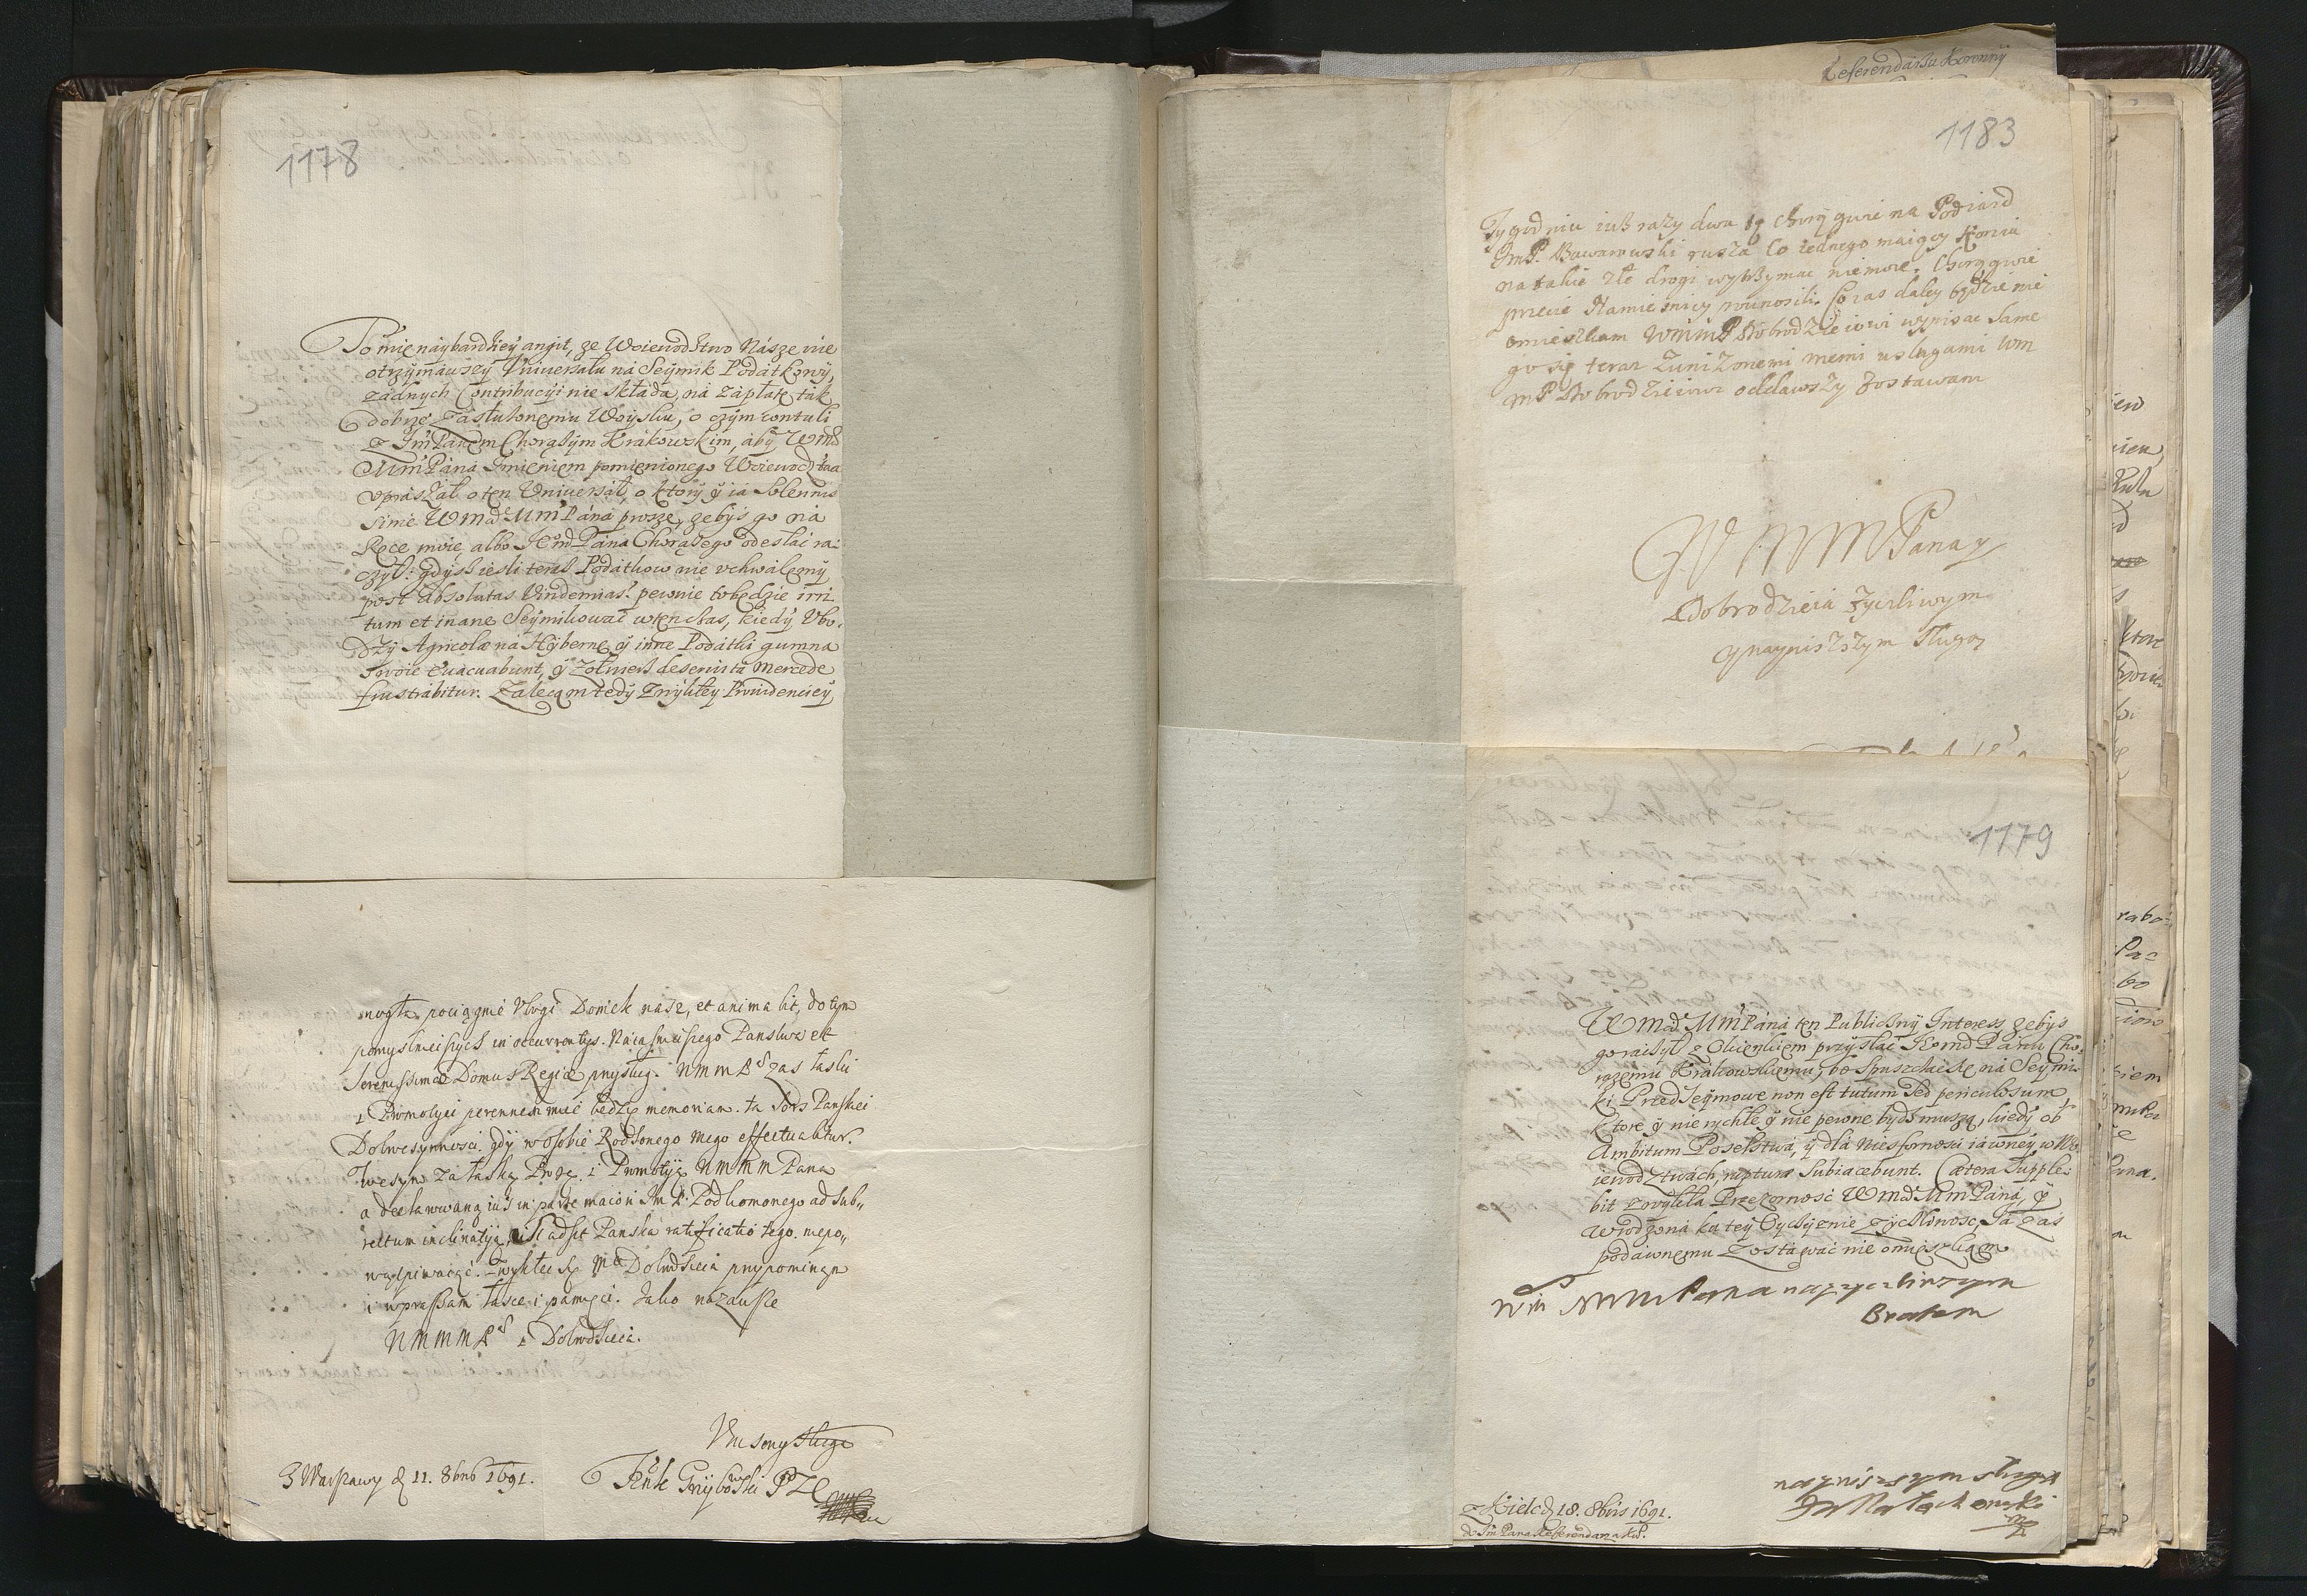 1178
To mię náybardziey angit, że Woiewodztwo Násze nie
otrzymáwszy Vniuersału ná Seymik Podatkowy,
żadnych Contribucyi nie składa, ná zápłatę ták
dobrze zásłużonemu Woysku, o czym contuli
z JmPánem Chorążym Krákowskim, áby WMd
MmPáná Imieniem pomienionego Woiewodztwa
vpraszał o ten Vniuersał, o który y ia Solennis
sime WMd MmPáná proszę, żebyś go ná
Ręce moie, albo JEmd Páná Chorążego odesłać ra-
czył: gdysz iesli teraz Podatkow nie vchwalemy
post absolutas Vindemias, pewnie to będzie irri
tum et inane Seymikować wten czas, kiedy Vbo-
dzy Agricolæ ná Hybernę y inne Podátki gumna
swoie euacuabunt, y żołnierz deseruita Mercede
frustrabitur. Zalecam tedy zwykłey Prouidenciey
mogła pociągnie Vbogi Domek nasz, et animabit, do tym
pomyslnieiszych in occurrentys. Naiasnieiszego Panstwa et
Serenissimæ Domus Regiæ przysług. Nmm Pd zas łaski
i Promotyei perennem mieć będzie memoriam. ta Sors Panskiei
Dobroczynnosci. gdy w osobie Rodzonego mego effectuabitur.
a declarowaną iuż in parte maiori Jm P. Podkomorzego ad sub-
rectum inclinatyą, si adsit Panska ratificatio tego. niepo-
wątpiwaiąc. Zwykłei się Md Dobrodzieia przypominam
i wpraszam łasce i pamięci. Jako nazawsze
NmmmPd i Dobrodzieia.
Vnizony sługa
Z Warszawy d 11. 8bris 1691.
Grzybowski PZC
Referendarzu Koronny
1183
Tygodniu iusz razy dwa tą Chorągwie na Podiazd
JmP. Buwarowski rusza Co iednego maiący Konia
na takie złe drogi wytrzymac niemoze. Chorągwie
przecie Namiesnicy wunosili. Co zas daley będzie nie
omieszkam WmmP Dobrodzieiowi wypisac Same
go się teraz Zunizonemi memi usługami Wm
mP Dobrodzieiowi oddawszy Zostawam
W M M Pana y
Dobrodzieia Zyczliwym
y naynizszym Sługą
1179
WMd MmPáná ten Publiczny Interess, żebyś
go raczył z Okienkiem przysłać JEmd Pánu Cho-
rążemu Krakowskiemu, bo spuszczáć się ná Seymi-
ki PrzedSeymowe non est tutum sed periculosum,
ktore y nie rychłe y nie pewne bydź muszą, kiedy ob
Ambitum Poselstwá, y dla niesforności iáwney w Wo-
iewodztwách, rupturæ Subiacebunt. Cætera Supple-
bit zwykła Przezorność WMd MmPáná, y
wrodzona ku tey Oyczyznie życzliwość, Ja zaś
podawnemu zostáwáć nie omieszkam
Wm MMM Pana nayzyczliwszym
Bratem
nayniszszym sługą
JMałachowski
z Kielc d 18. 8bris 1691.
do Jm Pana Referendarza Kor.